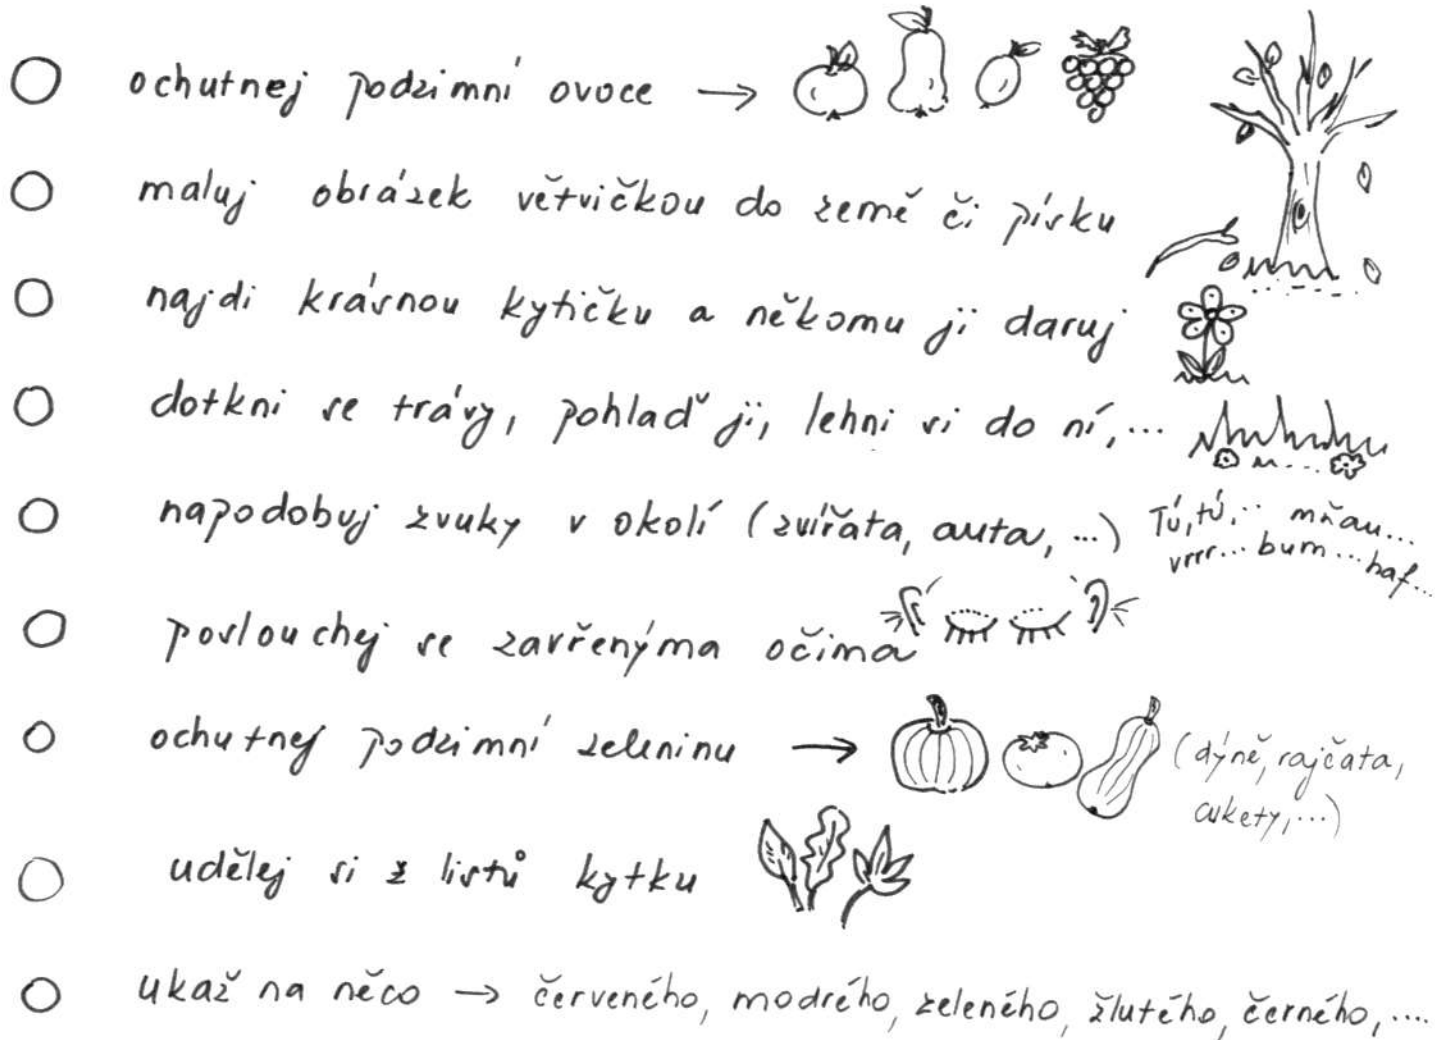 ochutnej podzimní ovoce →
maluj obrázek větvičkou do země či písku
najdi krásnou kytičku a někomu ji daruj
dotkni se trávy, pohlaď ji, lehni si do ní,...
napodobuj zvuky v okolí (zvířata, auta, ...) Tú, tú,.. mňau...
vrrr... bum ... haf...
poslouchej se zavřenýma očima
ochutnej podzimní zeleninu → (dýně, rajčata,
cukety,...)
udělej si z listů kytku
ukaž na něco → červeného, modrého, zeleného, žlutého, černého,....